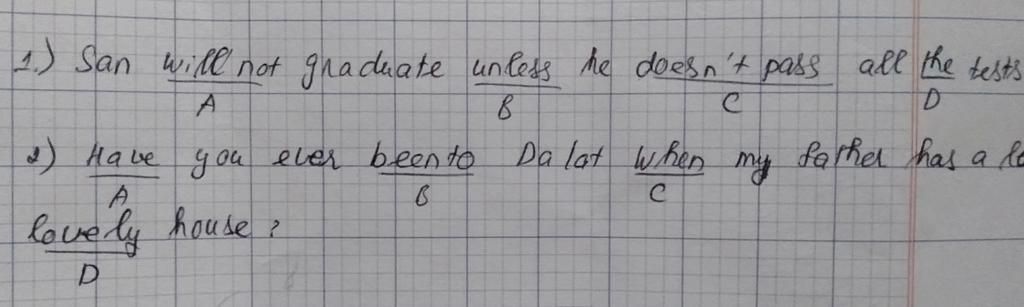 1.) San will not graduate unless he doesn't pass all the tests
A B C D
2) Have you ever been to Da lat when my father has a lo
A B C
lovely house?
D